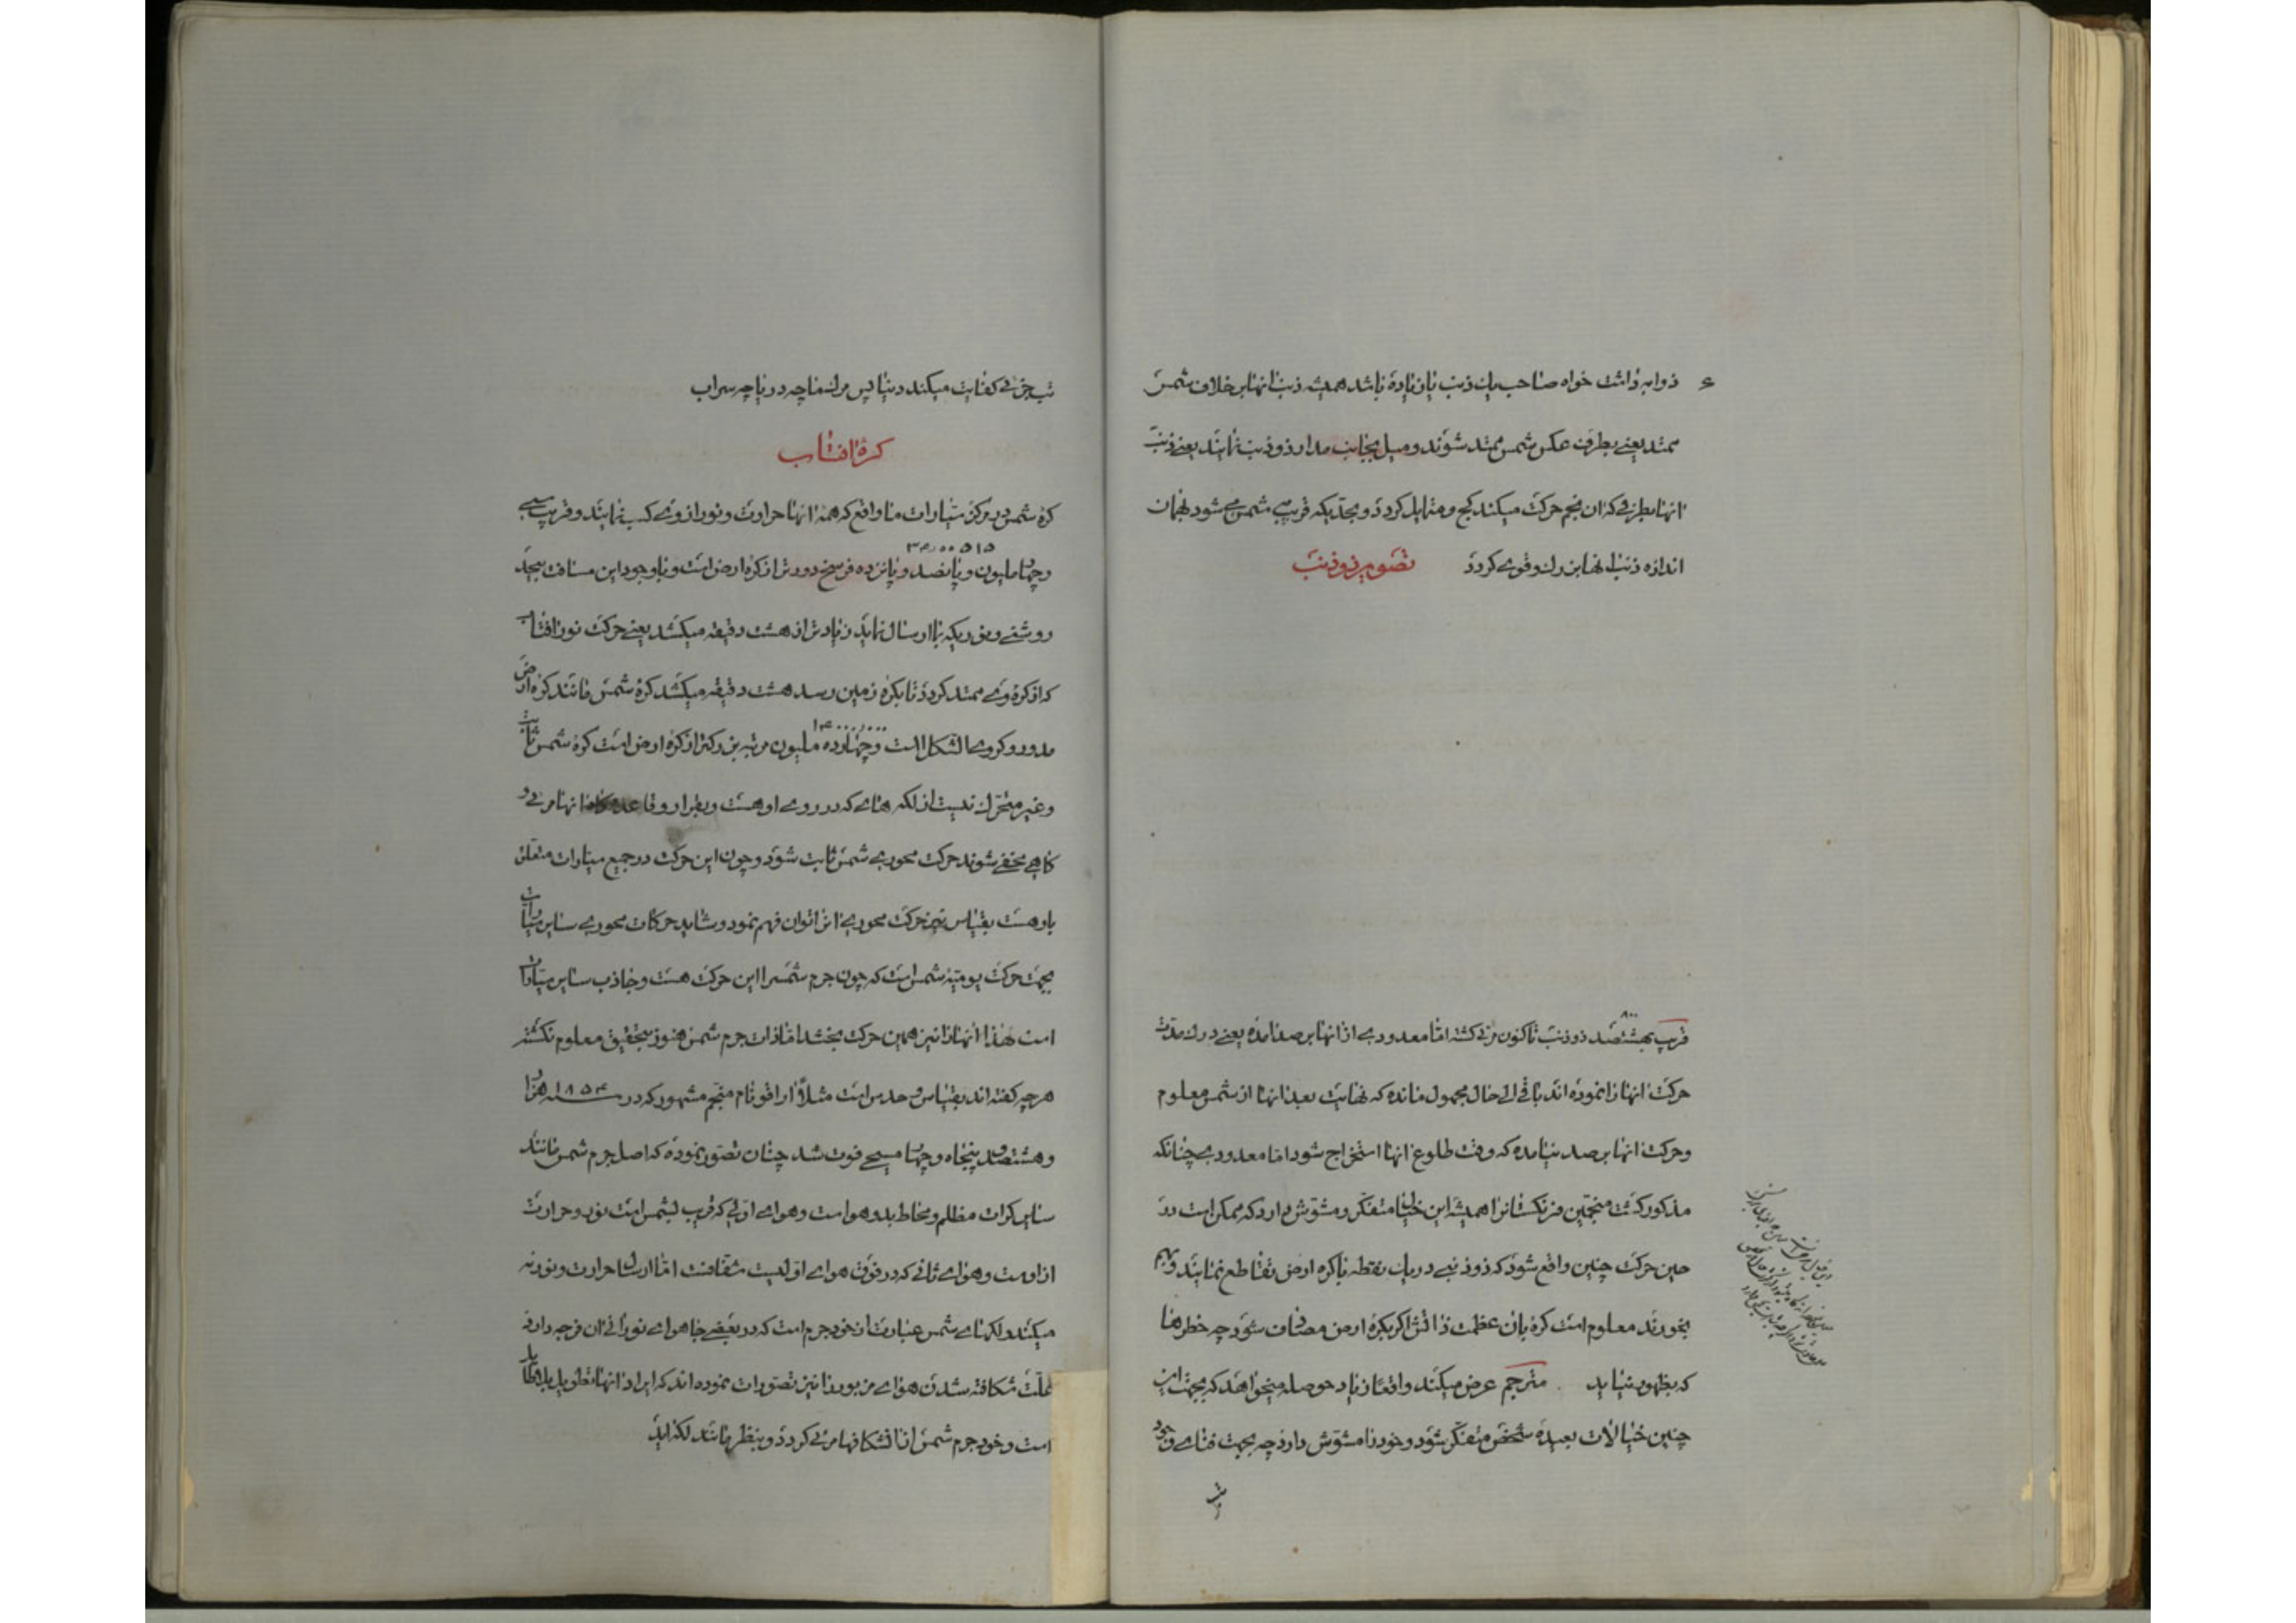 ذوابه داشت خواه صاحب یك ذنب یا زیاده باشد همیشه ذنب انها بر خلاف شمس
ممتد یعنے بطرف عکس شمس ممتد شوند و میل بجانب مدار ذو ذنب نمایند یعنے ذنب
انها بطرفے که ان نجم حرکت میکند کج و متمایل کردد و بحدیکه قریب شمس مے شود بهمان
اندازه ذنب انها بزرك و قوے کردد تصویر ذو ذنب
۸۰۰
قریب بهشتصد ذو ذنب تا کنون مرئی کشته اما معدودے از انها برصد امده یعنے درك مدت
حرکت انها را نموده اند باقی الی حال مجهول مانده که نهایت بعد انها از شمس معلوم
و حرکت انها برصد نیامده که وقت طلوع انها استخراج شود اما معدودے چنانکه
مذکور کشت منجمین فرنکستانرا همیشه این خیال متفکر و مشوش دارد که ممکن است در
حین حرکت چنین واقع شود که ذو ذنبے در یك نقطه با کره ارض تقاطع نمایند و بهم
بخورند معلوم است کره بان عظمت ذاتش اکر بکره ارض مصادف شود چه خطرها
که بظهور نیاید مترجم عرض میکند واقعا زیاد حوصله میخواهد که بجهت این
چنین خیالات بعیده شخص متفکر شود و خود را مشوش دارد چه بجهت فناے وجود
تب جزئی کفایت میکند دنیا پس مرك ما چه دریا چه سراب
کره افتاب
کره شمس در مرکز سیارات ما واقع که همه انها حرارت و نور از وے کسب نمایند و قریب سے
۳۴۰۰۵۱۵
و چهار ملیون و پانصد و پانزده فرسخ دورتر از کره ارض است و با وجود این مسافت بیحد
روشنے و نوریکه بما ارسال نماید زیادتر از هشت دقیقه میکشد یعنے حرکت نور افتاب
که از کره وے ممتد کردد تا بکره زمین رسد هشت دقیقه میکشد کره شمس مانند کره ارض
۱۴۰۰۰۰۰۰
مدور و کروے الشکل است و چهارده ملیون مرتبه بزرکتر از کره ارض است کره شمس ثابت
و غیر متحرك نیست از لکه هاے که در روے او هست و بقرار و قاعده کاه انها مرئی و
کاهے مخفے شوند حرکت محورے شمس ثابت شود و چون این حرکت در جمیع سیارات متعلق
باو هست بقیاس نیز حرکت محورے انرا توان فهم نمود و شاید حرکات محورے سایر سیارات
بجهت حرکت یومیه شمس است که چون جرم شمس را این حرکت هست و جاذب سایر سیارات
است لهذا انها را نیز همین حرکت بخشد اما ذات جرم شمس هنوز بتحقیق معلوم نکشته
هر چه کفته اند بقیاس و حدس است مثلا اراقو نام منجم مشهور که در سنه ۱۸۵۴ هزار
و هشتصد و پنجاه و چهار مسیحے فوت شد چنان تصور نموده که اصل جرم شمس مانند
سایر کرات مظلم و محاط بدو هواست و هواے اولی که قریب بشمس است نور و حرارت
از اوست و هواے ثانی که در فوق هواے اولیست شفافست اما ارسال حرارت و نور نه
میکند و لکهاے شمس عبارت از خود جرم است که در بعضے جاها هواے نورانی ان فرجه دارد
علت شکافته شدن هواے مزبور را نیز تصورات نموده اند که ایراد انها تطویل بلا طایل
است و خود جرم شمس از انشکافها مرئی کردد و بنظر مانند لکه اید